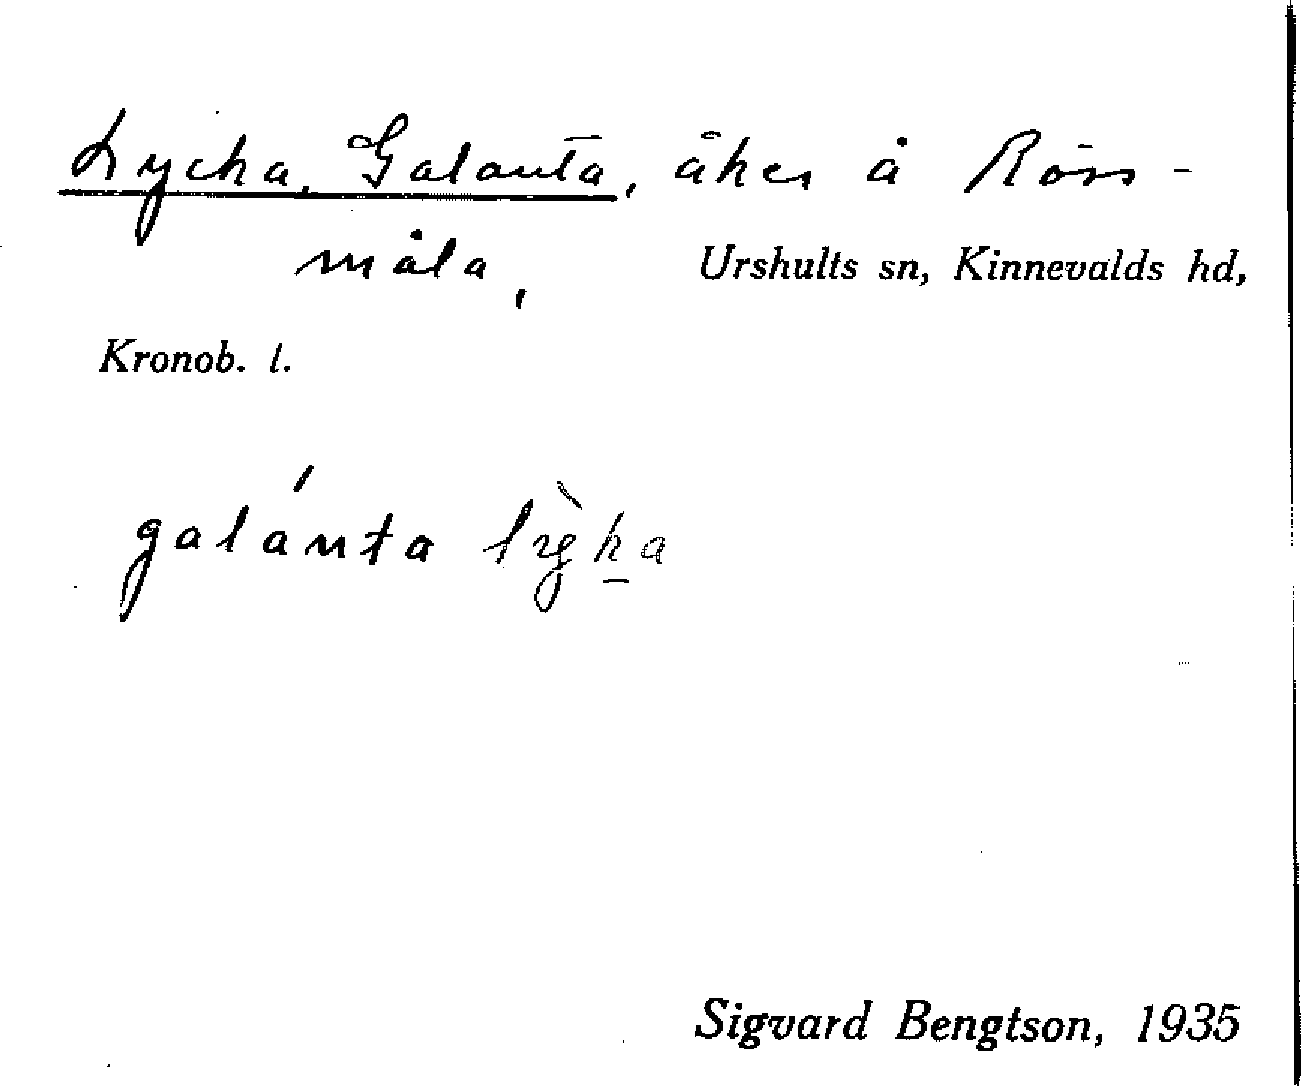 Lycka, Galanta, åker å Röss-
måla, Urshults sn, Kinnevalds hd,
Kronob. l.
galánta lỳka
Sigvard Bengtson, 1935